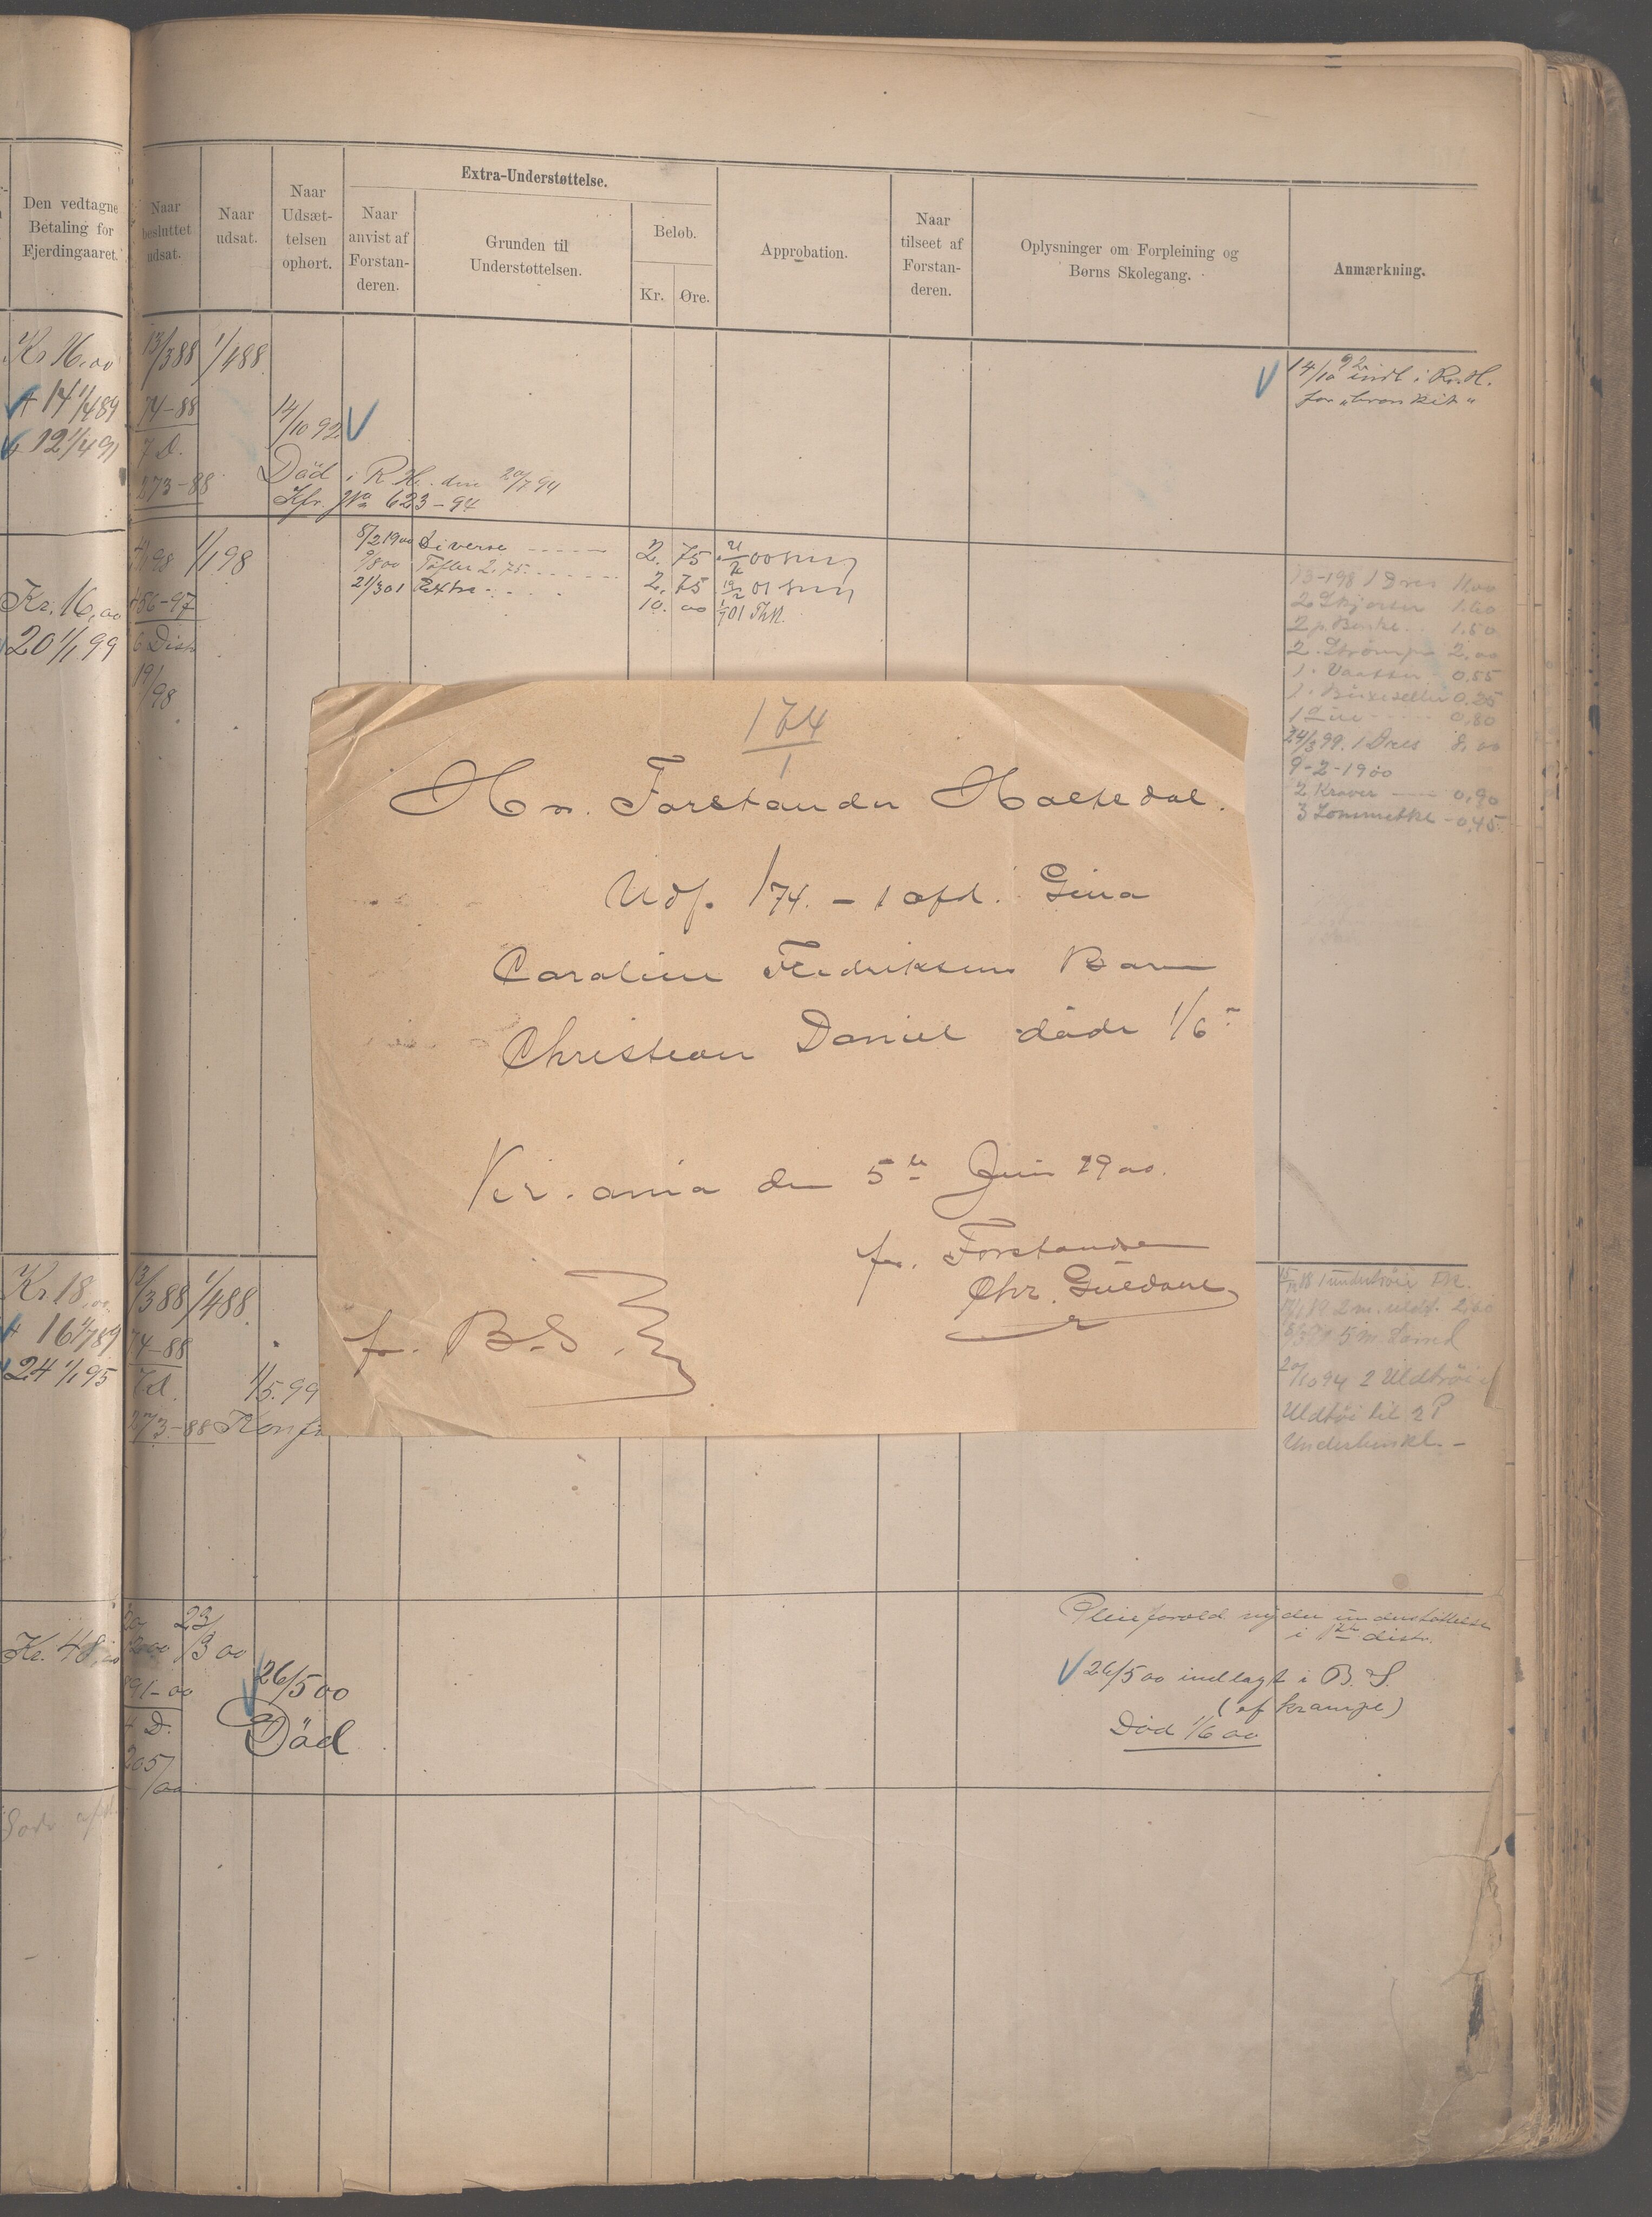 Den vedtagne
Betaling for
Fjerdingaaret.
Naar
besluttet
udsat.
Naar
udsat.
Naar
Udsæt-
telsen
ophørt.
Extra-Understøttelse.
Naar
anvist af
Forstan-
deren.
Grunden til
Understøttelsen.
Beløb.
Kr.
Øre.
Approbation.
Naar
tilseet af
Forstan-
deren.
Oplysninger om Forpleining og
Børns Skolegang.
Anmærkning.
Kr 16,00
13/3 88
1/4 88
14/10 92 indl i R. H.
for "bronkit"
14 1/4 89
74-88
14/10 92
12 1/4 91
7 D.
273-88
Död i R. H. den 20/7 94
Kfr. No 623-94
1/1 98
5/2 1900 Diverse
2. 75
9/8 00 Töfler 2.75
2. 75
21/3 01 Extra
10. 00
1/7 01
Kr. 16,00
486-97
20 1/1 99
6 Dist
19/98
13-1 98 1 Dres 11,00
2 Skjorter 1.60
2 p Benkl. 1,50
2 Strömper 2,00
0.55
0.25
0,80
24/3 99. 1 Dres 8,00
9-2-1900
2 Kraver 0,90
3 Lommetkl 0,45
174
1
Hr. Forstander Holtedal.
Udf. 1/74. - 1 afd. Gina
Caroline Fredriksens Barn
Christian Daniel döde 1/6
Kr.ania den 5te Juni 1900.
fr. Forstander
Chr. Guldahl
fr. B.S.
Kr 18,00
13/3 88
1/4 88
16 1/7 89
74-88
24 1/1 95
7 d.
1/5. 99
273-88 Konfr
1 undertröie
2 m. uldt. 2,00
5 m. Lared
20/10 94 2 Uldtröier
Uldtöi til 2 P
Underbenkl. -
Kr. 48,00
23/3 00
891-00
4 D.
205/00
26/5 00
Död
Pleieforæld. nyder understöttelse
i distr.
26/5 00 indlagt i B. S.
(af krampe)
Död 1/6 00